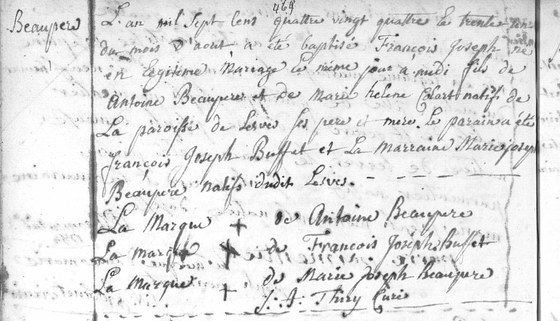 469
Beaupere
L'an mil Sept Cens quatre vingt quatre le trente
du mois d'aout a été baptisé François Joseph né
en Legitime Mariage le même jour a midi fils de
Antoine Beaupere et de Marie helene Colart natifs de
La paroisse de Lesves ses pere et mere. Le parain a été
françois Joseph Buffet et La Marraine Marie joseph
Beaupere natifs dudit Lesves.
La Marque + de Antoine Beaupere
La marque + de François Joseph Buffet
La Marque + de Marie Joseph Beaupere
J: J: Thiry Curé